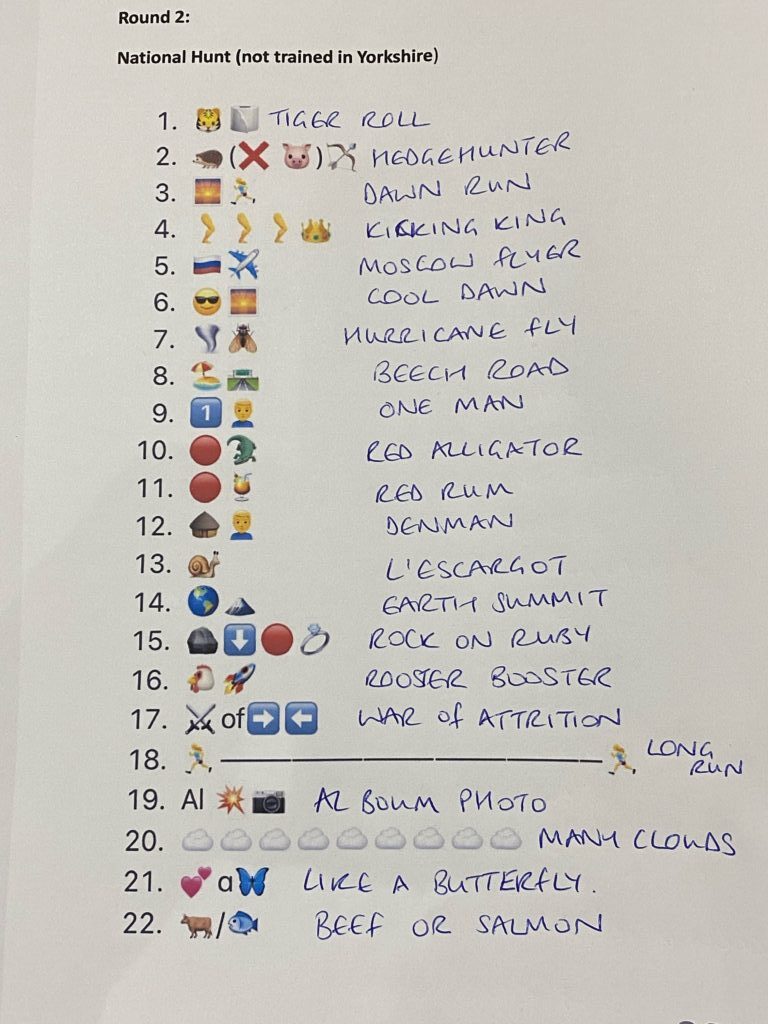 Round 2:
National Hunt (not trained in Yorkshire)
1. 🐯 🧻 TIGER ROLL
2. 🦔 (❌ 🐷) 🏹 HEDGEHUNTER
3. 🌅 🏃 DAWN RUN
4. 🦵 🦵 🦵 👑 KICKING KING
5. 🇷🇺 ✈️ MOSCOW FLYER
6. 😎 🌅 COOL DAWN
7. 🌪️ 🪰 HURRICANE FLY
8. 🏖️ 🛣️ BEECH ROAD
9. 1️⃣ 👨 ONE MAN
10. 🔴 🐊 RED ALLIGATOR
11. 🔴 🍹 RED RUM
12. 🛖 👨 DENMAN
13. 🐌 L'ESCARGOT
14. 🌎 🏔️ EARTH SUMMIT
15. 🪨 ⬇️ 🔴 💍 ROCK ON RUBY
16. 🐔 🚀 ROOSTER BOOSTER
17. ⚔️ of ➡️ ⬅️ WAR of ATTRITION
18. 🏃 —————————— 🏃 LONG RUN
19. Al 💥 📷 AL BOUM PHOTO
20. ☁️ ☁️ ☁️ ☁️ ☁️ ☁️ ☁️ ☁️ ☁️ MANY CLOUDS
21. 💕 a 🦋 LIKE A BUTTERFLY.
22. 🐂/🐟 BEEF OR SALMON